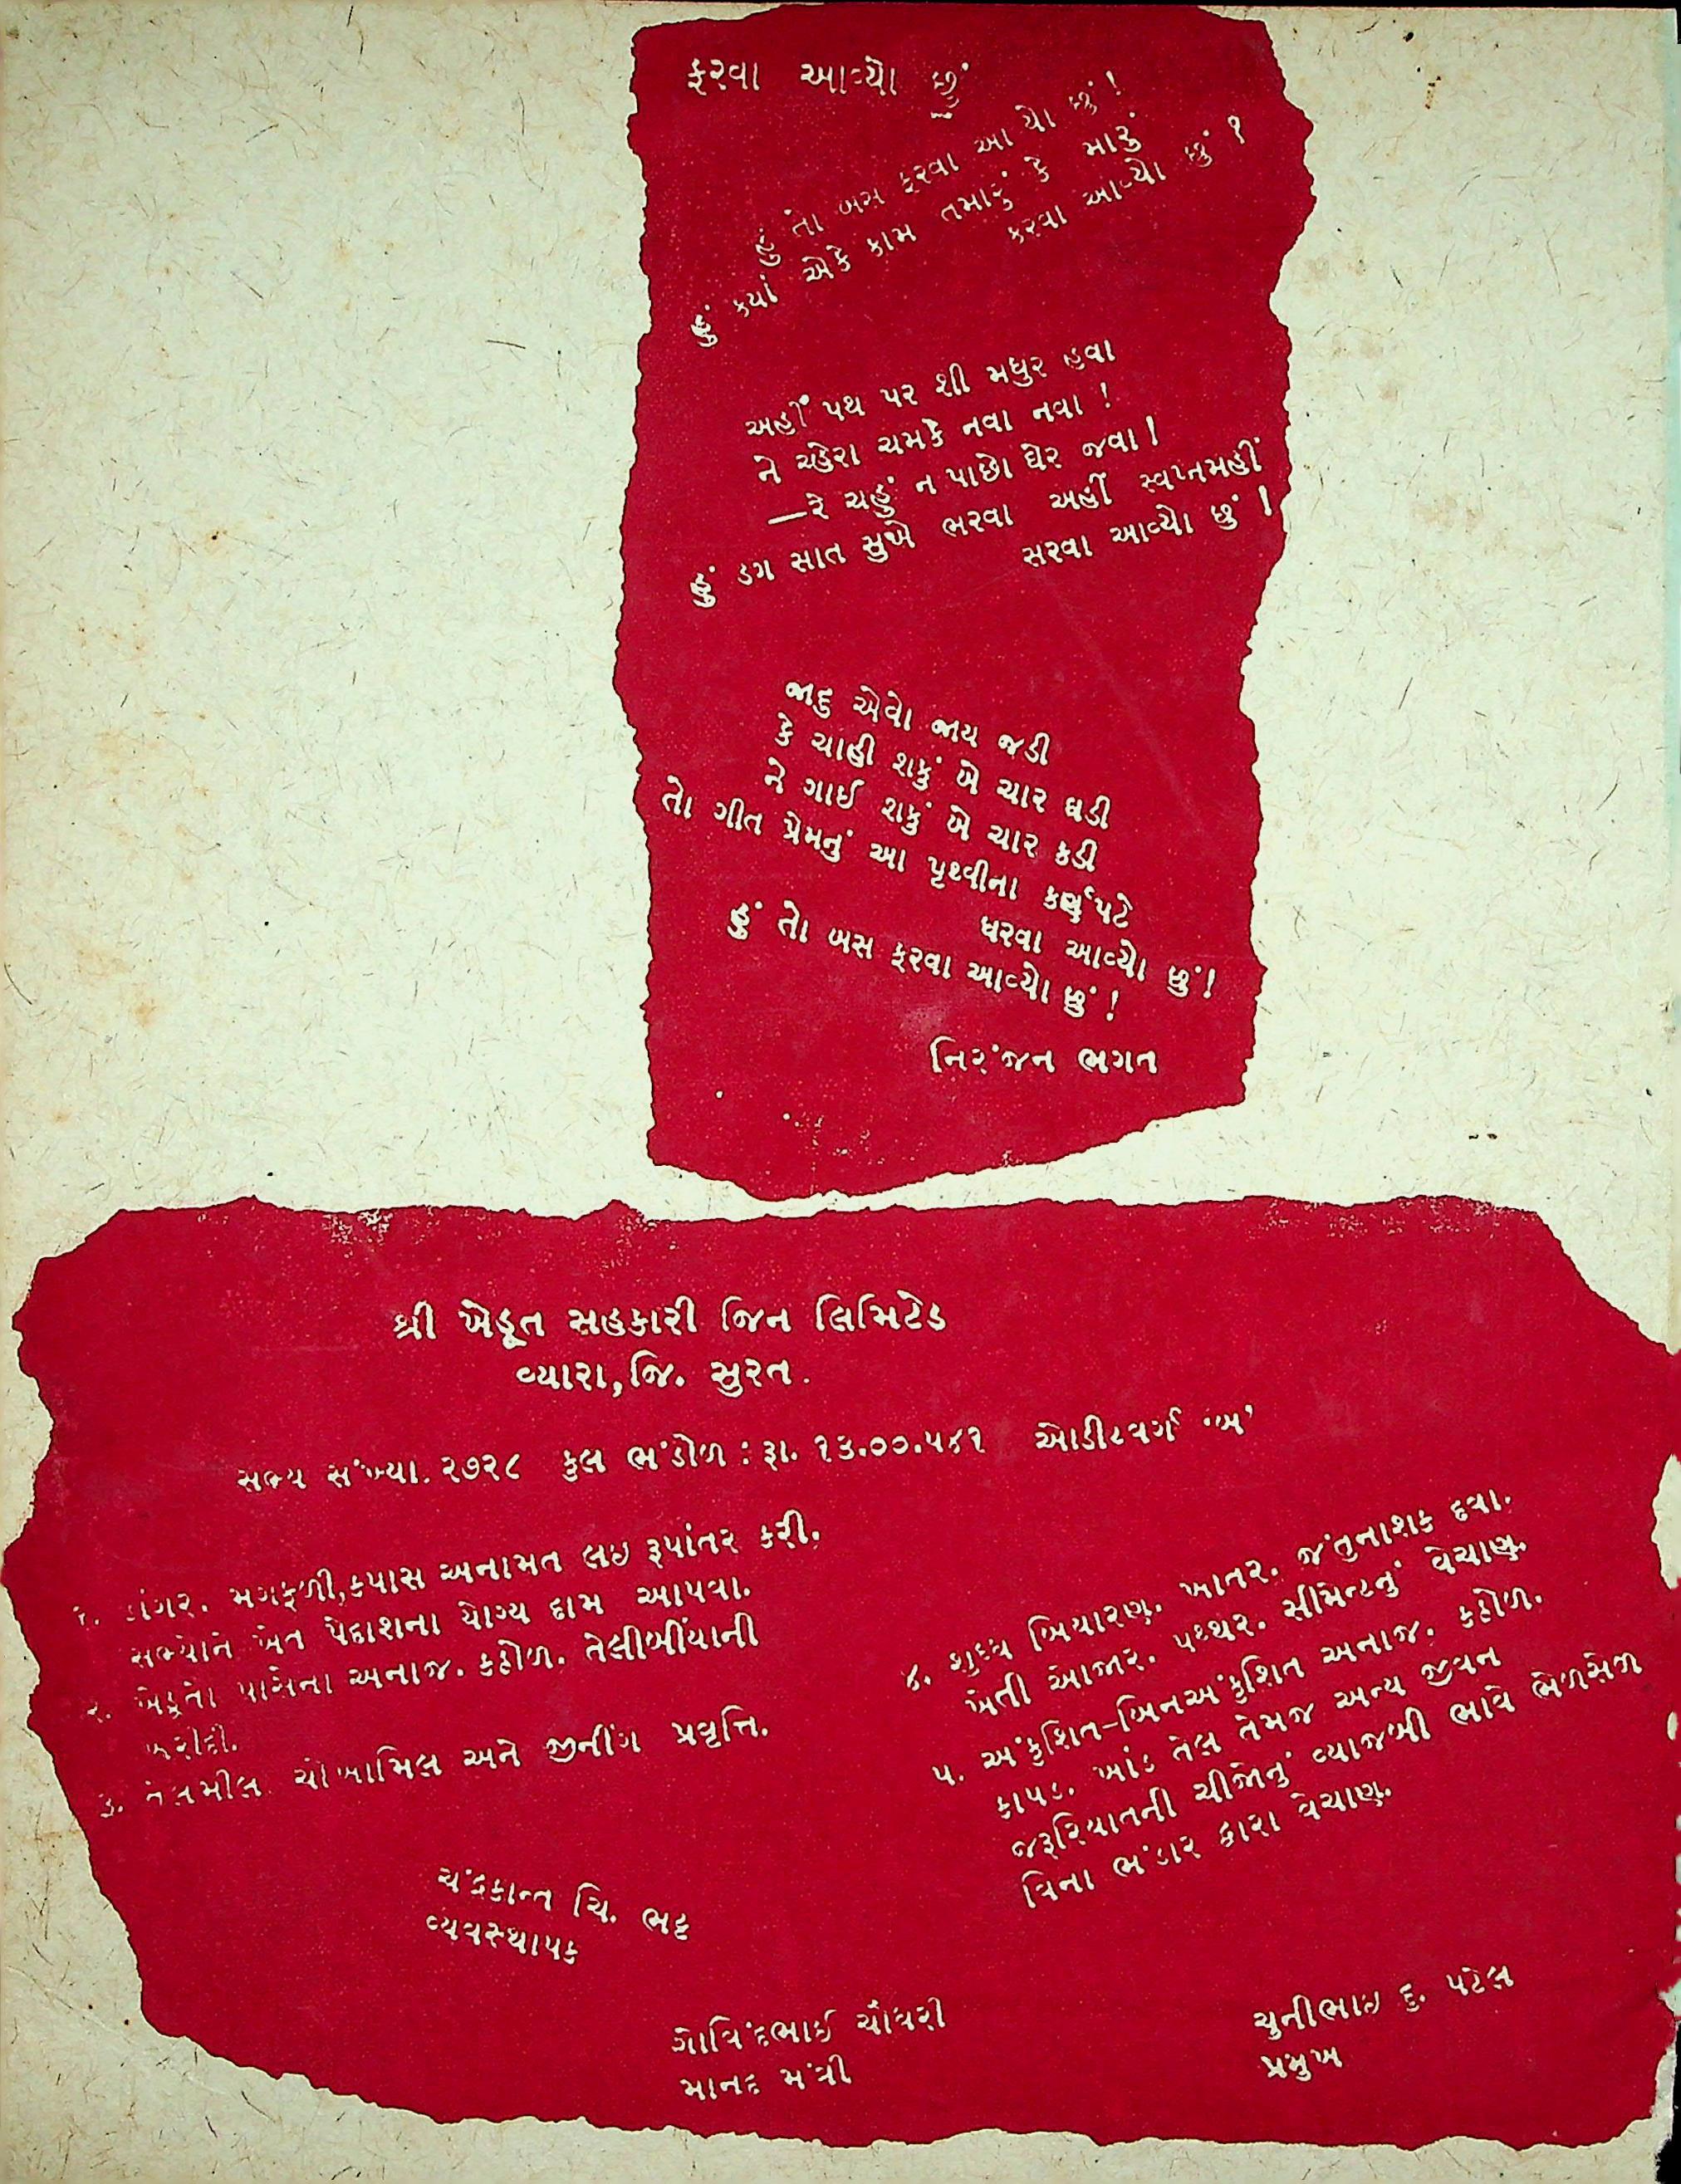 ફરવા આવ્યો છું
હું તો બસ ફરવા આવ્યો છું !
હું ક્યાં એકે કામ તમારું કે મારું
કરવા આવ્યો છું ?
અહીં પથ પર શી મધુર હવા
ને ચ્હેરા ચમકે નવા નવા !
—રે ચહું ન પાછો ઘેર જવા !
હું ડગ સાત સુખે ભરવા અહીં સ્વપ્નમહીં
સરવા આવ્યો છું !
જાદુ એવો જાય જડી
કે ચાહી શકું બે ચાર ઘડી
ને ગાઈ શકું બે ચાર કડી
તો ગીત પ્રેમનું આ પૃથ્વીના કર્ણપટે
ધરવા આવ્યો છું !
હું તો બસ ફરવા આવ્યો છું !
નિરંજન ભગત
શ્રી ખેડૂત સહકારી જિન લિમિટેડ
વ્યારા, જિ. સુરત.
સભ્ય સંખ્યા. ૨૭૨૮ કુલ ભંડોળ : રૂા. ૧૩.૦૦.૫૪૧ ઓડીટવર્ગ 'અ'
૧. ડાંગર. મગફળી, કપાસ અનામત લઇ રૂપાંતર કરી,
સભ્યોને ખેત પેદાશના યોગ્ય દામ આપવા.
૨. ખેડૂતો પાસેના અનાજ. કઠોળ. તેલીબીંયાની
ખરીદી.
૩. તેલમીલ. ચોખામિલ અને જીનીંગ પ્રવૃત્તિ.
૪. શુદ્ધ બિયારણ. ખાતર. જંતુનાશક દવા.
ખેતી ઓજાર. પથ્થર. સીમેન્ટનું વેચાણ.
૫. અંકુશિત-બિનઅંકુશિત અનાજ. કઠોળ.
કાપડ. ખાંડ તેલ તેમજ અન્ય જીવન
જરૂરિયાતની ચીજોનું વ્યાજબી ભાવે ભેળસેળ
વિના ભંડાર દ્વારા વેચાણ.
ચંદ્રકાન્ત ચિ. ભટ્ટ
વ્યવસ્થાપક
ગોવિંદભાઈ ચૌધરી
માનદ મંત્રી
ચુનીભાઇ દુ. પટેલ
પ્રમુખ